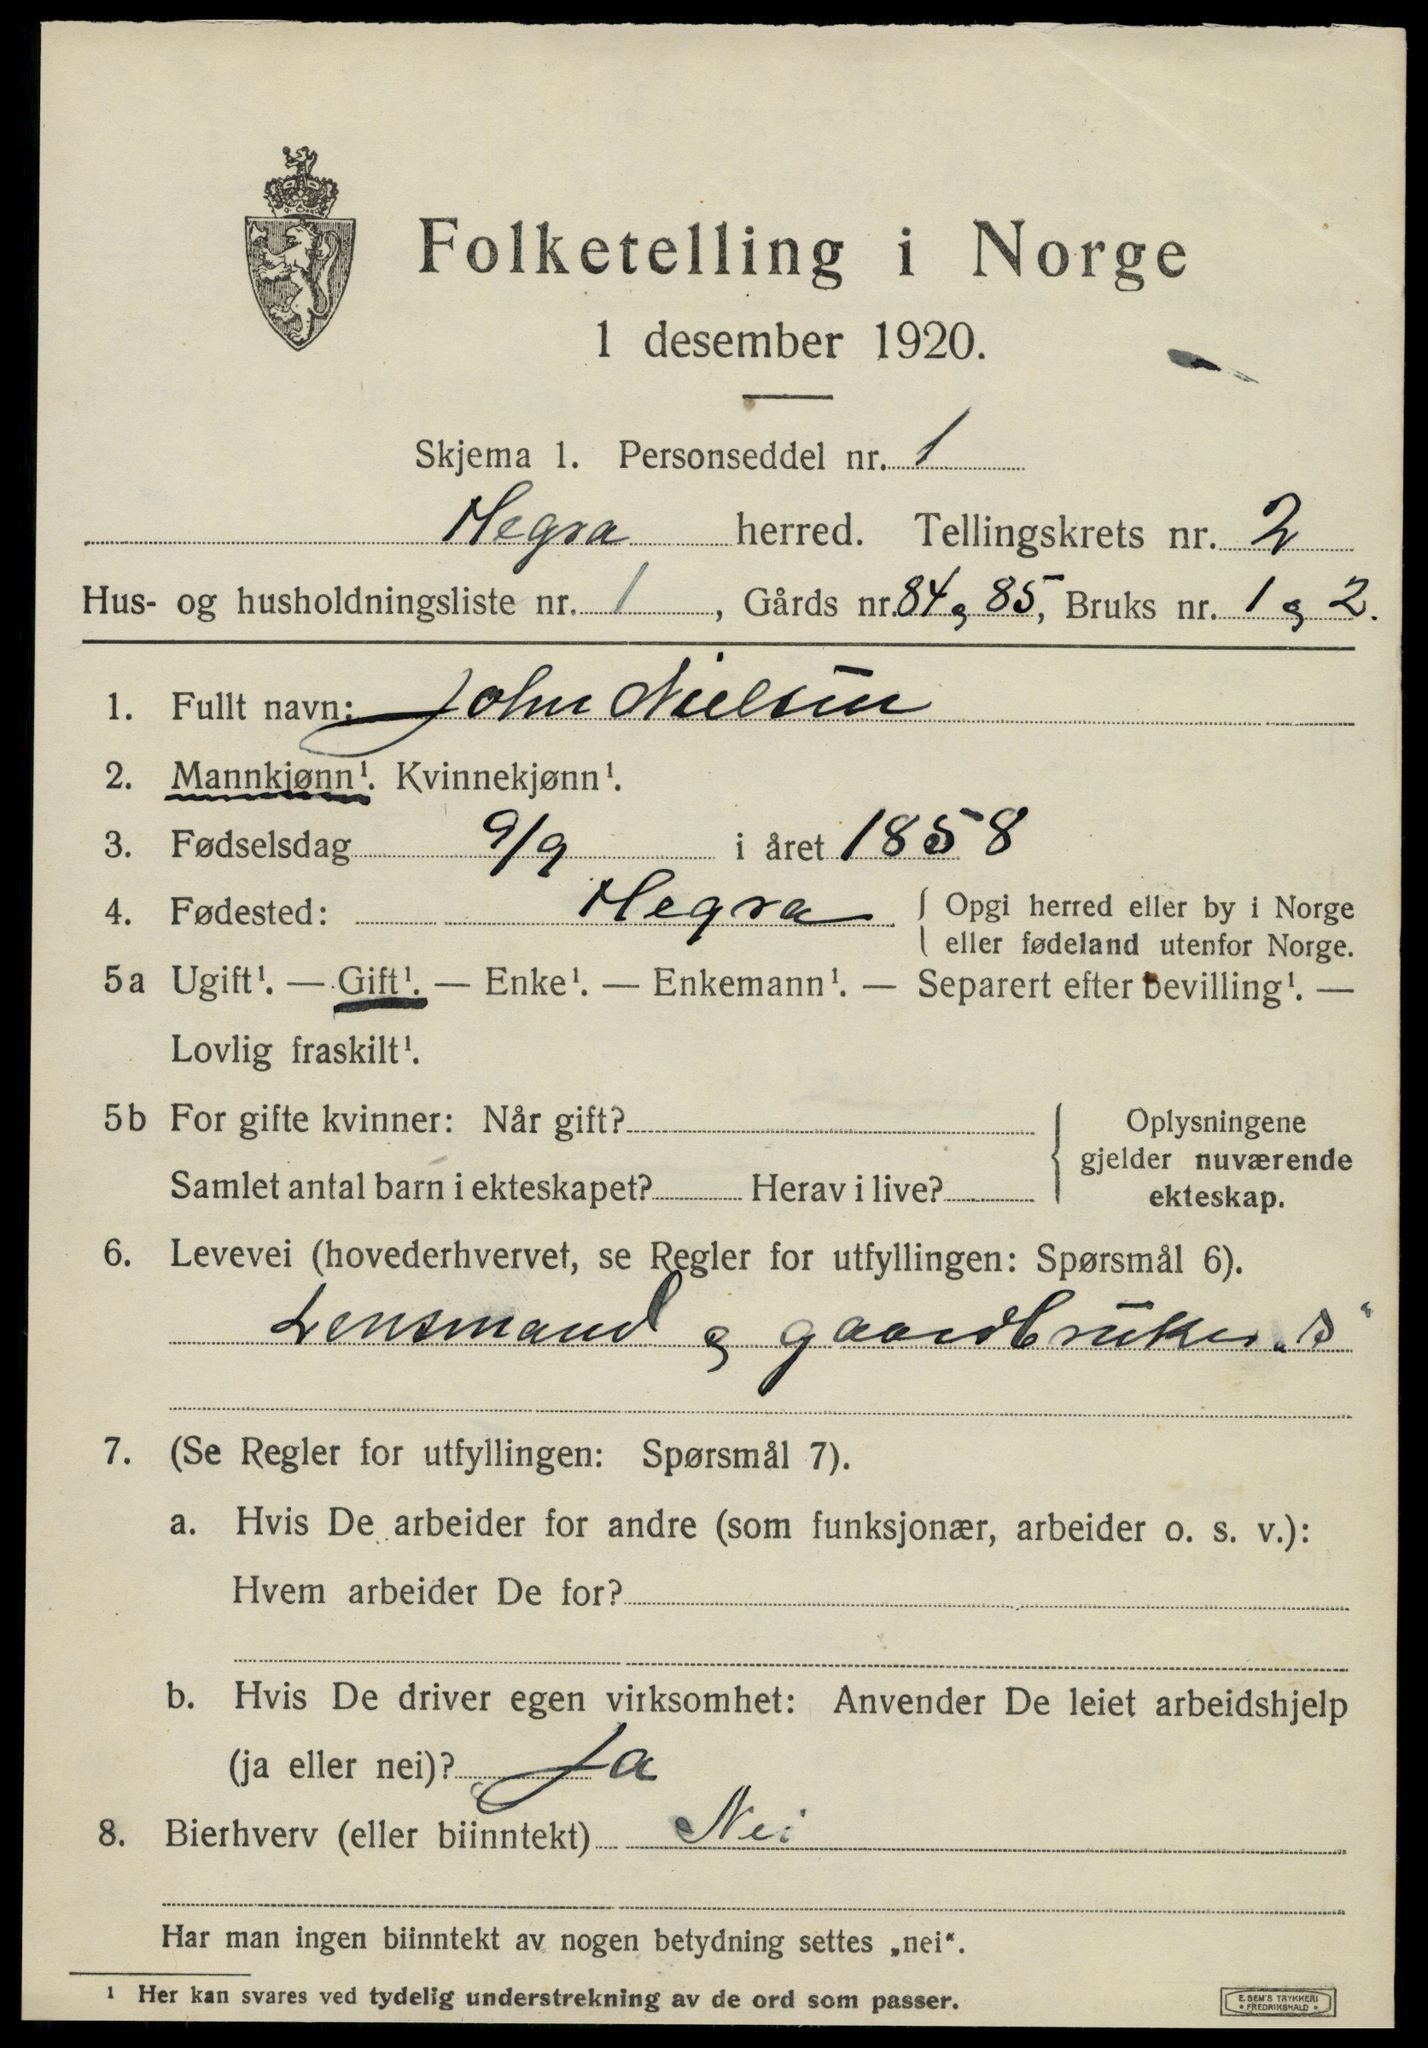 Folketelling i Norge
1 desember 1920.
Skjema 1. Personseddel nr. 1
Hegra herred. Tellingskrets nr. 2
Hus- og husholdningsliste nr. 1, Gårds nr. 84 og 85, Bruks nr. 1 og 2.
1. Fullt navn: John Nielsen
2. Mannkjønn¹. Kvinnekjønn¹.
3. Fødselsdag 9/9 i året 1858
4. Fødested: Hegra { Opgi herred eller by i Norge
eller fødeland utenfor Norge.
5a Ugift¹. — Gift¹. — Enke¹. — Enkemann¹. — Separert efter bevilling¹. —
Lovlig fraskilt¹.
5b For gifte kvinner: Når gift? { Oplysningene
gjelder nuværende
Samlet antal barn i ekteskapet? Herav i live? ekteskap.
6. Levevei (hovederhvervet, se Regler for utfyllingen: Spørsmål 6).
Lensmand og gaardbruker „s“
7. (Se Regler for utfyllingen: Spørsmål 7).
a. Hvis De arbeider for andre (som funksjonær, arbeider o. s. v.):
Hvem arbeider De for?
b. Hvis De driver egen virksomhet: Anvender De leiet arbeidshjelp
(ja eller nei)? Ja
8. Bierhverv (eller biinntekt) Nei
Har man ingen biinntekt av nogen betydning settes „nei“.
¹ Her kan svares ved tydelig understrekning av de ord som passer.
E. SEM'S TRYKKERI
* FREDRIKSHALD *